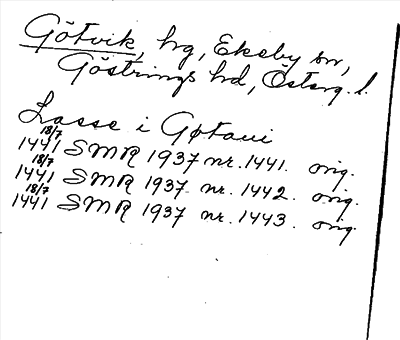 Götvik, hg, Ekeby sn,
Göstrings hd, Östergl.
Lasse i Gøtaui
18/7
1441 SMR 1937 nr. 1441. orig.
18/7
1441 SMR 1937 nr. 1442. orig.
18/7
1441 SMR 1937 nr. 1443. orig.